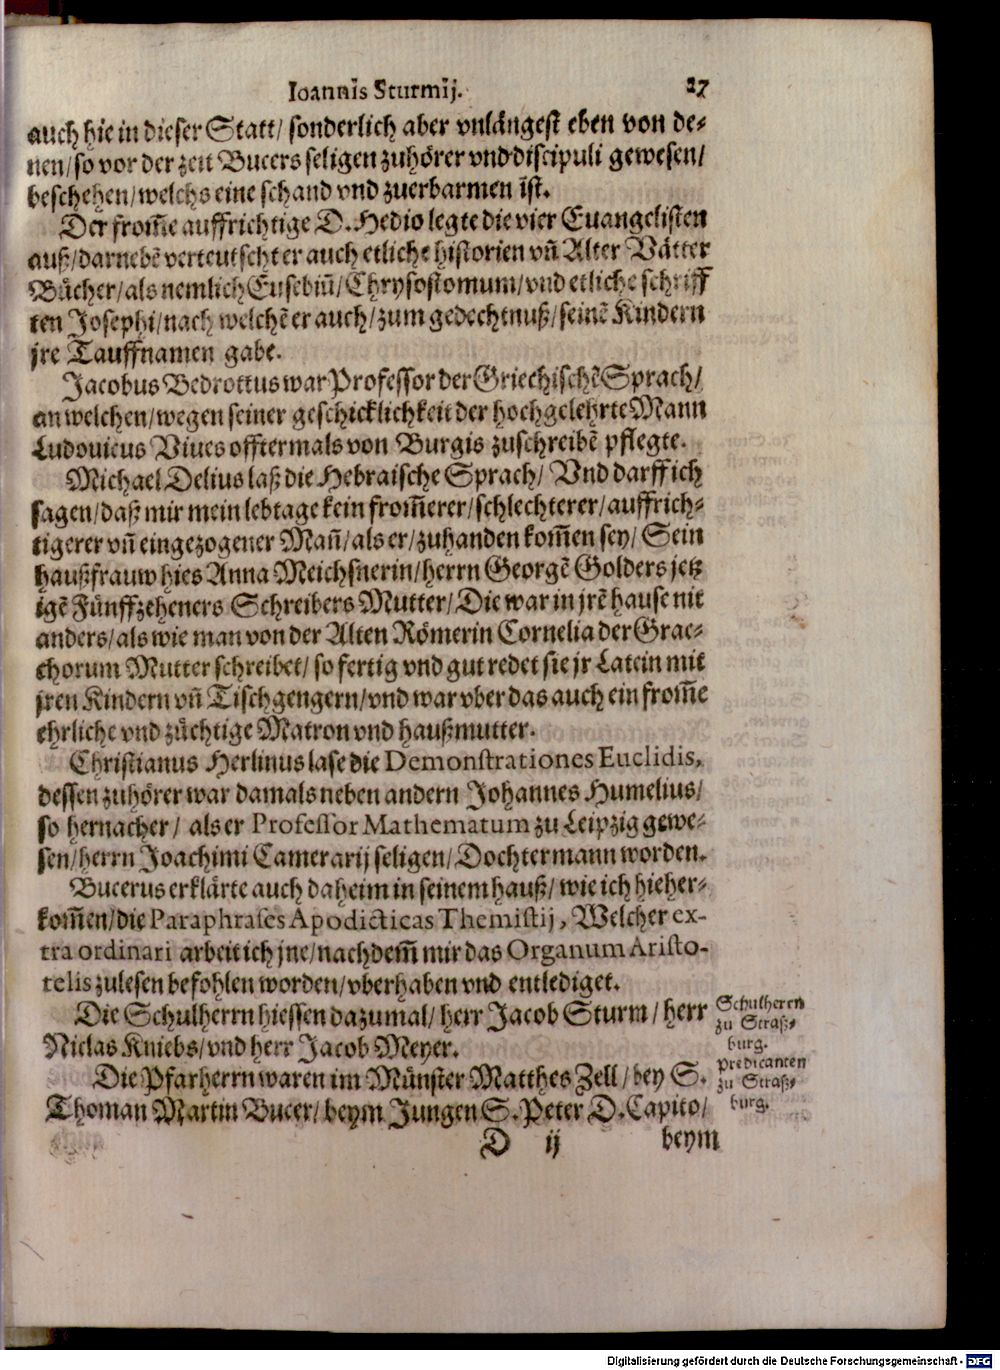 Ioannis Sturmij.
27
auch hie in dieser Statt/ sonderlich aber vnlängest eben von de-
nen/ so vor der zeit Bucers seligen zuhörer vnd discipuli gewesen/
beschehen/ welchs eine schand vnd zuerbarmen ist.
Der from̃e auffrichtige D. Hedio legte die vier Euangelisten
auß/ darnebẽ verteutscht er auch etliche historien vñ Alter Vätter
Bücher/ als nemlich Eusebiũ/ Chrysostomum/ vnd etliche schriff
ten Josephi/ nach welchẽ er auch/ zum gedechtnuß/ seinẽ Kindern
jre Tauffnamen gabe.
Jacobus Bedrottus war Professor der Griechischẽ Sprach/
an welchen/ wegen seiner geschicklichkeit der hochgelehrte Mann
Ludovicus Viues offtermals von Burgis zuschreibẽ pflegte.
Michael Delius laß die Hebraische Sprach/ Vnd darff ich
sagen/ daß mir mein lebtage kein from̃erer/ schlechterer/ auffrich-
tigerer vñ eingezogener Mañ/ als er/ zuhanden kom̃en sey/ Sein
haußfrauw hies Anna Meichsnerin/ herrn Georgẽ Golders jetz
igẽ Fünffzeheners Schreibers Mutter/ Die war in jrẽ hause nit
anders/ als wie man von der Alten Römerin Cornelia der Grac-
chorum Mutter schreibet/ so fertig vnd gut redet sie jr Latein mit
jren Kindern vñ Tischgengern/ vnd war vber das auch ein from̃e
ehrliche vnd züchtige Matron vnd haußmutter.
Christianus Herlinus lase die Demonstrationes Euclidis,
dessen zuhörer war damals neben andern Johannes Humelius/
so hernacher/ als er Professor Mathematum zu Leipzig gewe-
sen/ herrn Joachimi Camerarij seligen/ Dochtermann worden.
Bucerus erklärte auch daheim in seinem hauß/ wie ich hieher-
kom̃en/ die Paraphrases Apodicticas Themistij, Welcher ex-
tra ordinari arbeit ich jne/ nachdem̃ mir das Organum Aristo-
telis zulesen befohlen worden/ vberhaben vnd entlediget.
Die Schulherrn hiessen dazumal/ herr Jacob Sturm/ herr
Niclas Kniebs/ vnd herr Jacob Meyer.
Die Pfarherrn waren im Münster Matthes Zell/ bey S.
Thoman Martin Bucer/ beym Jungen S. Peter D. Capito/
Schulherrn
zu Straß-
burg.
Predicanten
zu Straß-
burg.
D ij
beym
Digitalisierung gefördert durch die Deutsche Forschungsgemeinschaft - DFG